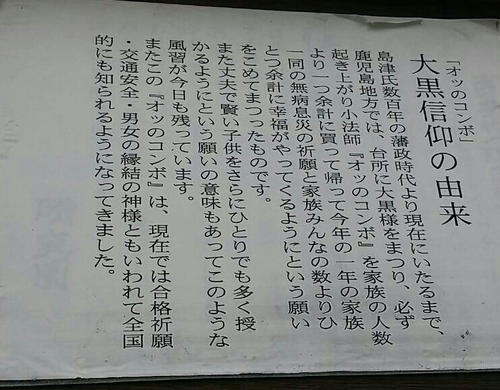 「オッのコンボ」
大黒信仰の由来
島津氏数百年の藩政時代より現在にいたるまで、
鹿児島地方では、台所に大黒様をまつり、必ず
起き上がり小法師『オッのコンボ』を家族の人数
より一つ余計に買って帰って今年の一年の家族
一同の無病息災の祈願と家族みんなの数よりひ
とつ余計に幸福がやってくるようにという願い
をこめてまつったものです。
また丈夫で賢い子供をさらにひとりでも多く授
かるようにという願いの意味もあってこのような
風習が今日も残っています。
またこの『オッのコンボ』は、現在では合格祈願
・交通安全・男女の縁結の神様ともいわれて全国
的にも知られるようになってきました。